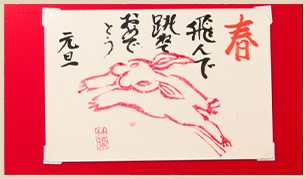 春
飛んで
跳ねて
おめで
とう
元旦